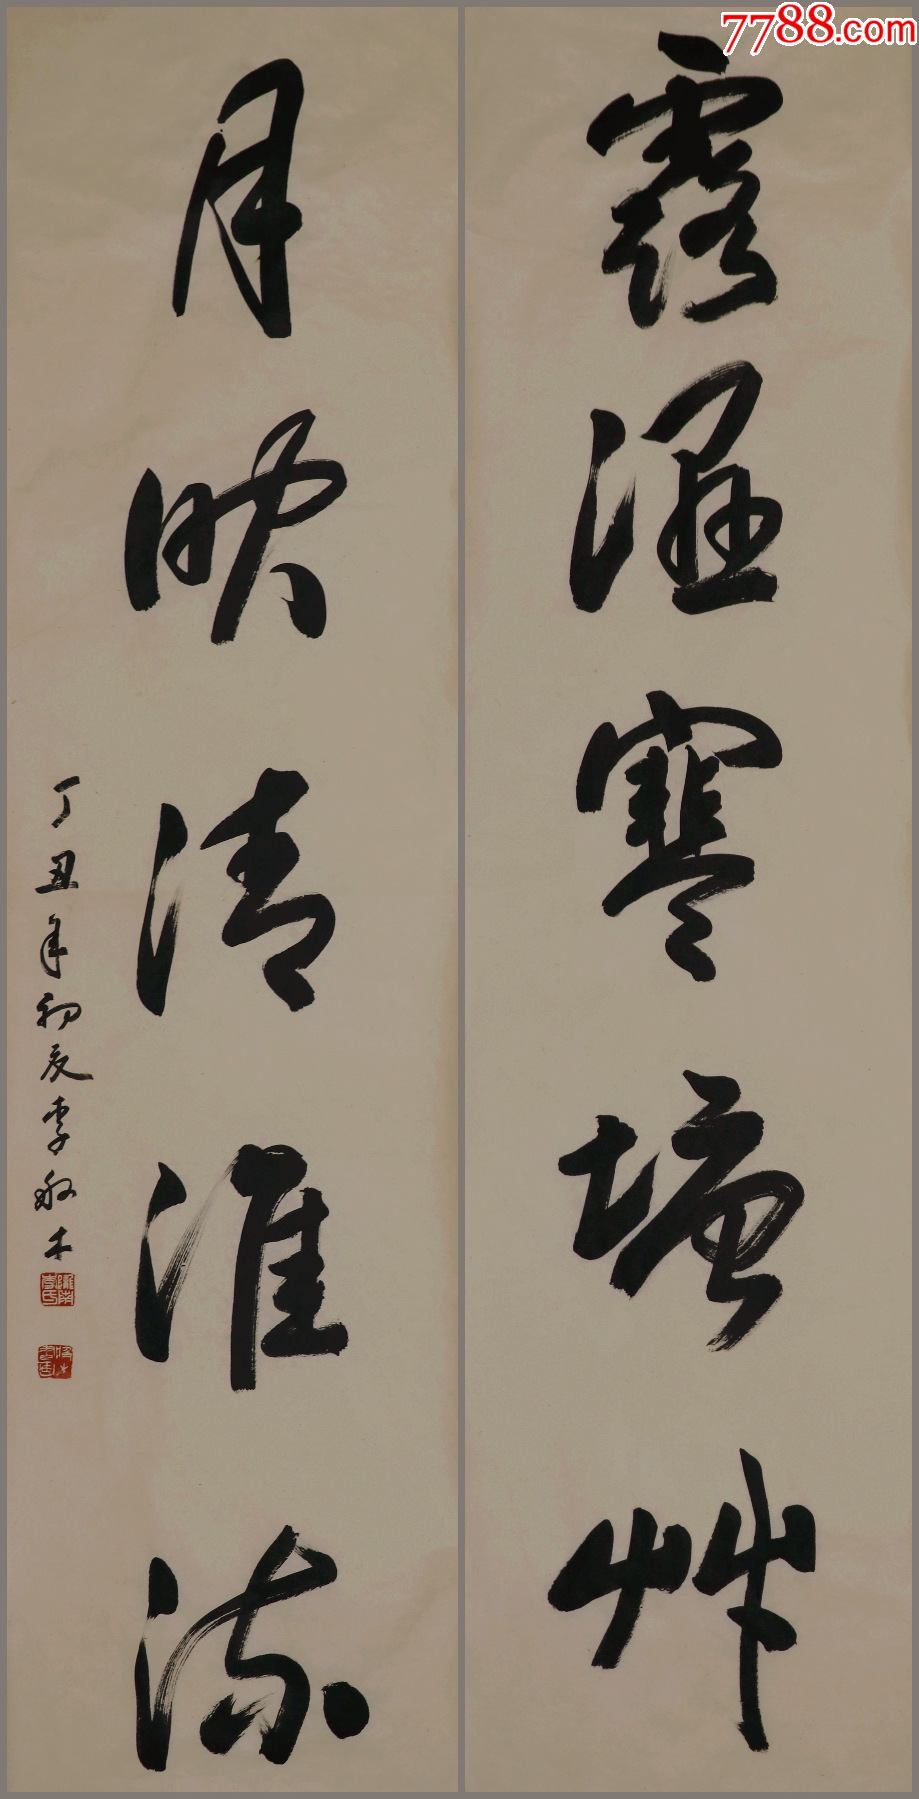 7788.com
露湿寒塘草
月映清淮流
丁丑年初夏李敬木